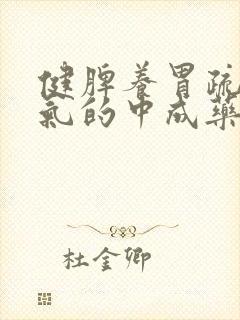 健脾养胃疏
氣的中成藥
杜金卿